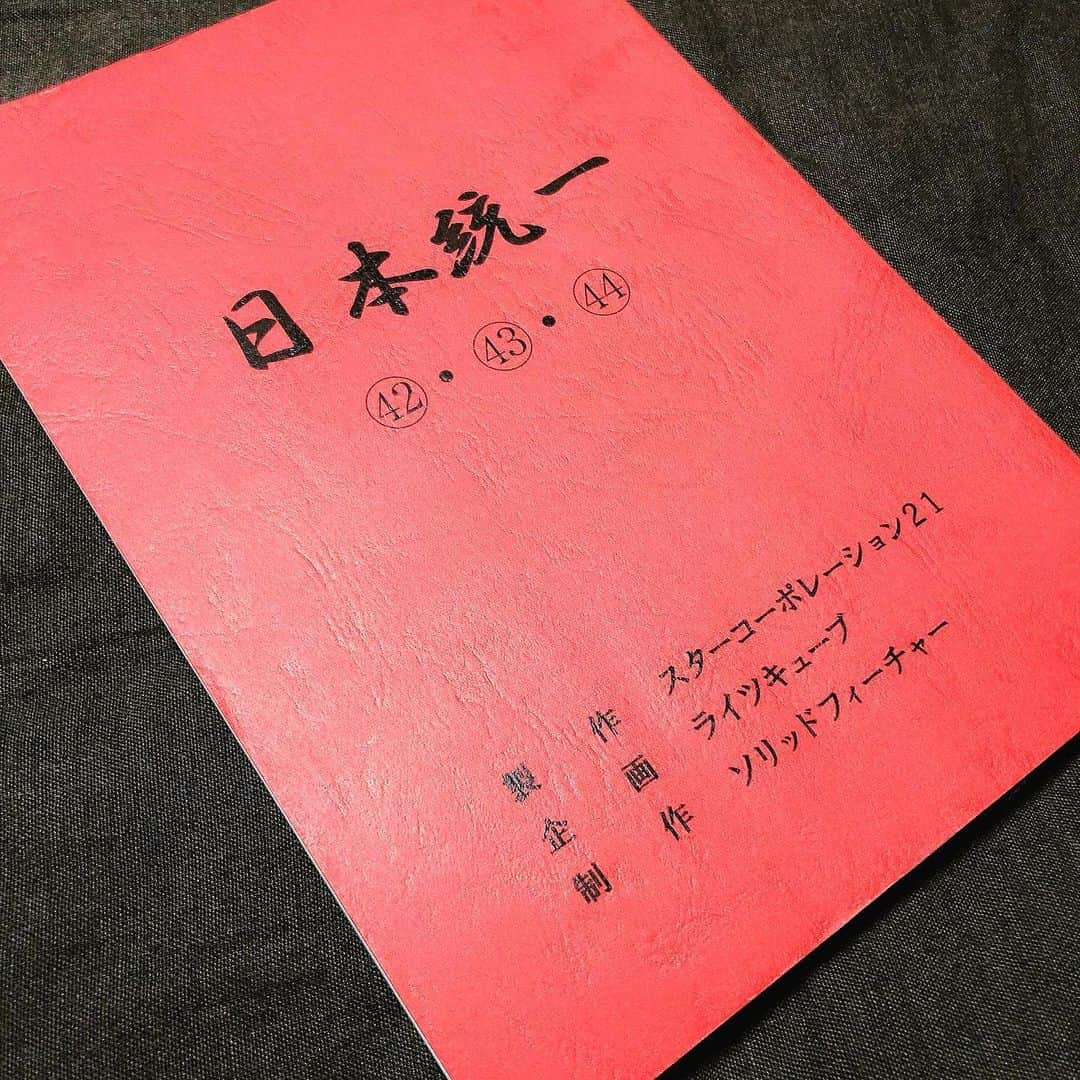 日本統一
㊷・㊸・㊹
製作 スターコーポレーション21
企画 ライツキューブ
制作 ソリッドフィーチャー